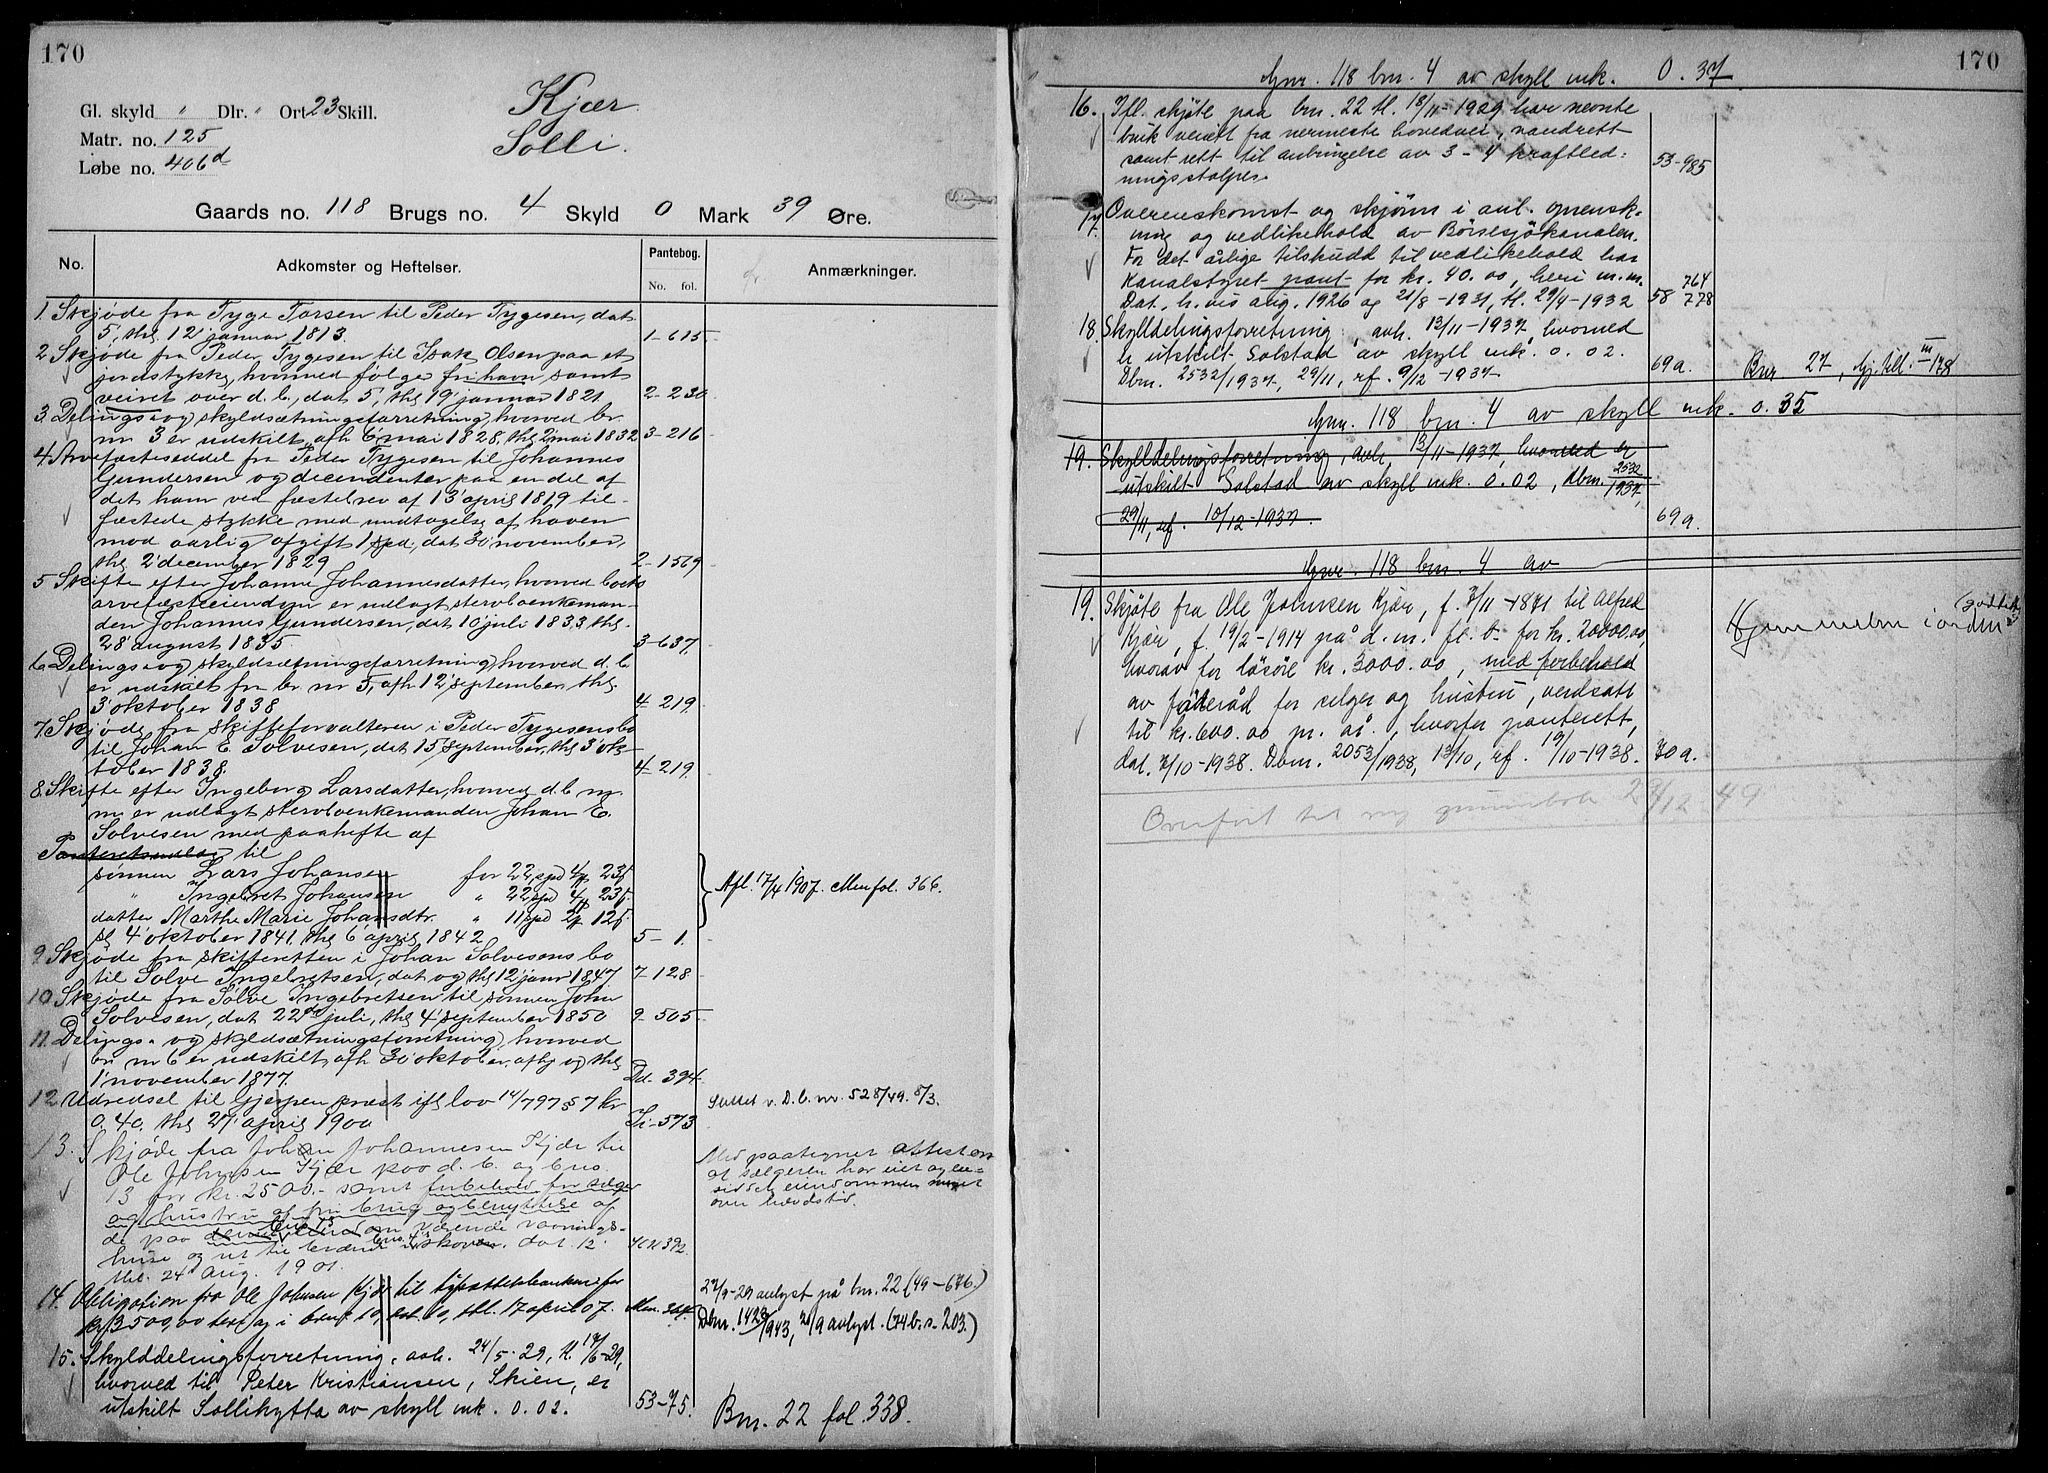 170
Gl. skyld " Dlr. " Ort 23 Skill.
Kjær
Matr. no. 125
Solli.
Løbe no. 406d
Gaards no. 118 Brugs no. 4 Skyld 0 Mark 39 Øre.
No. Adkomster og Heftelser. Pantebog. No. fol. Anmærkninger.
1. Skjøde fra Tyge Torsen til Peder Tygesen, dat
5', thg. 12' januar 1813. 1-615
2 Skjøde fra Peder Tygesen til Isak Olsen paa et
jordstykke, hvormed følger fri havn, samt
veiret over d. b., dat 5', thg 19' januar 1821. 2-230
3. Delings- og skyldsætningsforretning, hvorved br.
nr 3 er udskilt, afh 6' mai 1828, thg 2' mai 1832 3-216
4. Arvefæsteseddel fra Peder Tygesen til Johannes
Gundersen og decendenter paa en del af
det ham ved fæstebrev af 13' april 1819 til-
fæstede stykke med undtagelse af haven
mod aarlig afgift 1 spd., dat 30' november,
thg 2' december 1829 2-1569
5 Skifte efter Johanne Johannesdatter, hvorved boets
arvefæsteeiendom er udlagt stervboenkeman-
den Johannes Gundersen, dat 10' juli 1833, thg.
28' august 1835. 3-637.
6. Delings- og skyldsætningsforretning, hvorved d. b
er udskilt fra br. nr 5, afh. 12' september, thg.
3' oktober 1838 4-219.
7. Skjøde fra skifteforvalteren i Peder Tygesens bo
til Johan E. Solvesen, dat 15' september, thg 3' ok-
tober 1838. 4-219.
8. Skifte efter Ingeborg Larsdatter, hvorved d. b m.
m. er udlagt stervboenkemanden Johan E.
Solvesen med paahefte af
Panteretsudlæg til
sønnen Lars Johansen for 22 spd 4 23
" Ingebret Johansen " 22 spd 4 23
datter Marthe Marie Johansdtr. " 11 spd 2 12
Afl. 17/4 1907. Mm fol. 366.
4' oktober 1841. thg 6' april 1842 5-1.
9. Skjøde fra skifteretten i Johan Solvesens bo
til Solve Ingebretsen, dat og thg 12' janr 1847. 7-128
10 Skjøde fra Solve Ingebretsen til sønnen John
Solvesen, dat 22' juli, thg 4' september 1850 9-505
11. Delings- og skyldsætningsforretning, hvorved
br. nr 6 er udskilt, afh 30' oktober, afhj og thg
1' november 1877. Dd-394.
12 Udredsel til Gjerpen prest ifl. lov 14/7 97 § 7 kr
0.40. thg 27' april 1900 Ti-573
Slettet v. D. b. nr. 528/49. 8/3.
13. Skjøde fra Johan Johannesen Kjær til
Ole Johnsen Kjær paa d. b. og bno.
13 for kr. 2500.- samt forbehold for sælger
og hustru af fri brug og benyttelse af
de paa bno 13 værende vaanings-
huse og ret til brænde i bno. 4's skoven. dat. 12'
thl. 24' Aug. 1901. 392.
Med paategnet attest om
at sælgeren har eiet og be-
siddet eiendommen
over hævdstid.
14. Obligation fra Ole Johnsen Kjær til hypothekbanken for
kr 3500,00 heri og i brno 19, thl. 17 april 07. Mm.
27/9-29 avlyst på bnr. 22 (49-676.)
Dbnr. 1429/943, 21/9 avlyst. (74 b. s-203.)
15. Skylddelingsforretning, avh. 24/5-29, tl. 17/6-29,
hvorved til Peter Kristiansen, Skien, er
utskilt Sollihytta av skyll mk. 0.02. 53-75.
Bnr. 22 fol. 338.
170
Gnr. 118 bnr. 4 av skyll mk. 0.37
16. Ifl. skjöte paa bnr. 22 tl. 18/11-1929 har nevnte
bruk veirett fra nermeste hovedvei, vandrett
samt rett til anbringelse av 3-4 kraftled-
ningsstolper. 53-985
17. Overenskomst og skjönn i anl. opprensk-
ning og vedlikehold av Börsesjökanalen.
For det årlige tilskudd til vedlikehold har
Kanalstyret pant for kr. 40.00, heri m.m.
Dat. h.vis aug. 1926 og 21/8-1931, tl. 29/4-1932 58 764 778
18. Skylddelingsforretning, avh. 13/11-1937, hvorved
er utskilt Solstad av skyll mk. 0.02.
Dbnr. 2532/1937, 29/11, rf. 9/12-1937 69a. Bnr 27, fol. III-178
Gnr. 118 bnr. 4 av skyll mk. 0.35
19. Skylddelingsforretning, avh. 13/11-1937, hvorved er
utskilt Solstad av skyll mk. 0.02, Dbnr. 2532/1937,
29/11, rf. 10/12-1937. 69a.
Gnr. 118 bnr. 4 av
19. Skjöte fra Ole Johnsen Kjær, f. 7/11-1871 til Alfred
Kjær, f. 19/2-1914 på d. m. fl. b. for kr. 20000.00,
hvorav for lösöre kr. 3000.00, med forbehold
av föderåd for selger og hustru, verdsatt
til kr. 600.00 pr. år, hvorfor panterett,
dat. 7/10-1938. Dbnr. 2053/1938, 13/10, rf. 19/10-1938. 70a.
Hjemmelen i orden
Overført til ny grunnbok 29/12-49